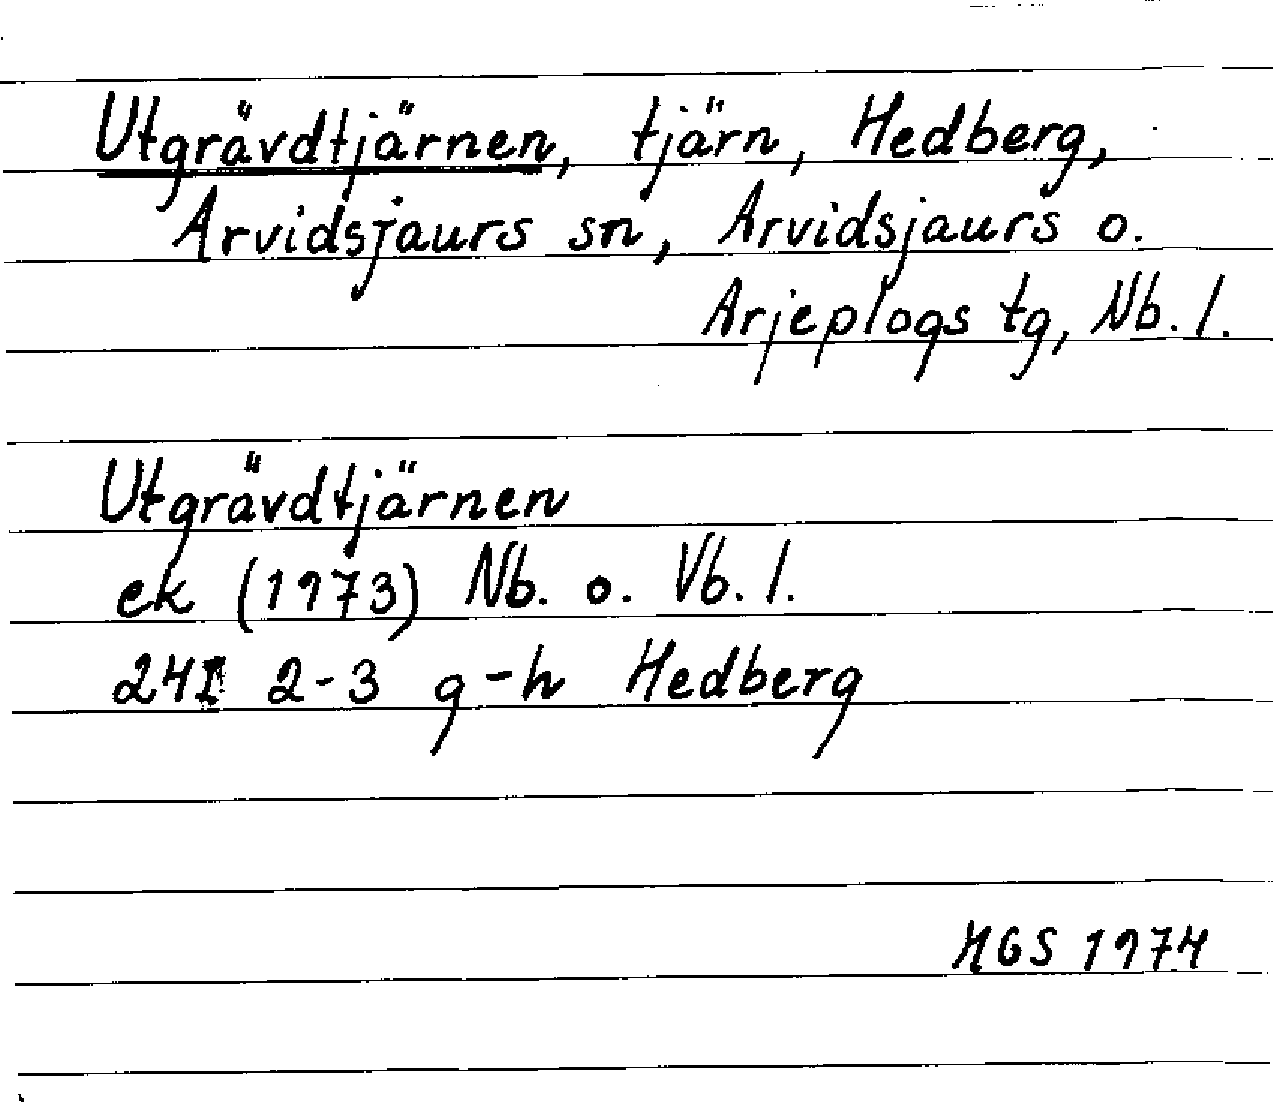 Utgrävdtjärnen, tjärn, Hedberg,
Arvidsjaurs sn, Arvidsjaurs o.
Arjeplogs tg, Nb. l.
Utgrävdtjärnen
ek (1973) Nb. o. Vb. l.
24I 2-3 g-h Hedberg
HGS 1974